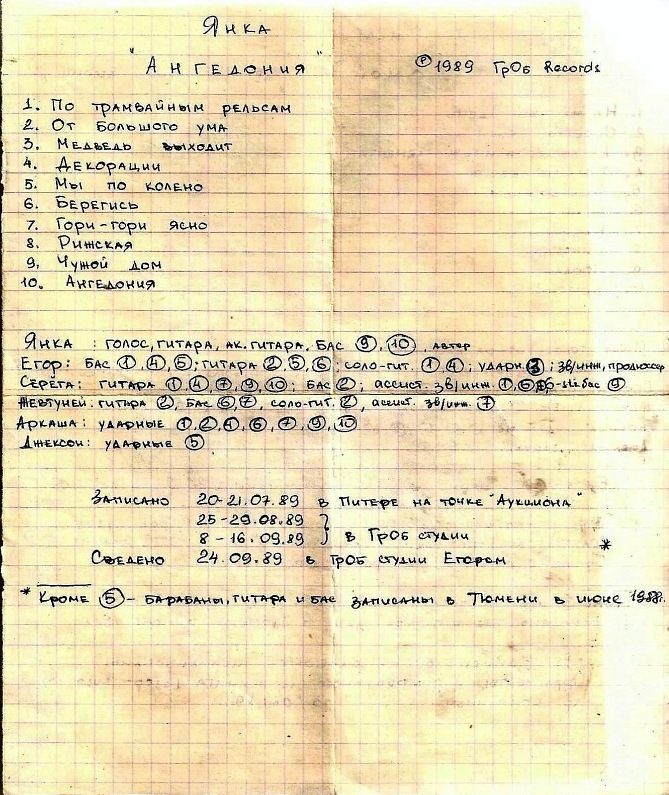 Янка
"Ангедония"
Ⓟ 1989 ГрОб Records
1. По трамвайным рельсам
2. От большого ума
3. Медведь выходит
4. Декорации
5. Мы по колено
6. Берегись
7. Гори-гори ясно
8. Рижская
9. Чужой дом
10. Ангедония
Янка: голос, гитара, ак. гитара, бас ⑨, ⑩, автор
Егор: бас ①, ④, ⑤; гитара ②, ⑤, ⑥; соло-гит. ①, ④; ударн ③; зв/инж, продюсер
Серёга: гитара ①, ④, ⑦, ⑨, ⑩; бас ②; ассист. зв/инж. ①, ⑥ бас ⑨
Жевтуней: гитара ②, бас ⑥, ⑦, соло-гит. ②, ассист. зв/инж. ⑦
Аркаша: ударные ①, ②, ④, ⑥, ⑦, ⑨, ⑩
Джексон: ударные ⑤
Записано 20-21.07.89 в Питере на точке "Аукцыона"
25-29.08.89
8-16.09.89 } в ГрОб студии
Сведено 24.09.89 в ГрОб студии Егором *
* Кроме ⑤ - барабаны, гитара и бас записаны в Тюмени в июне 1988г.